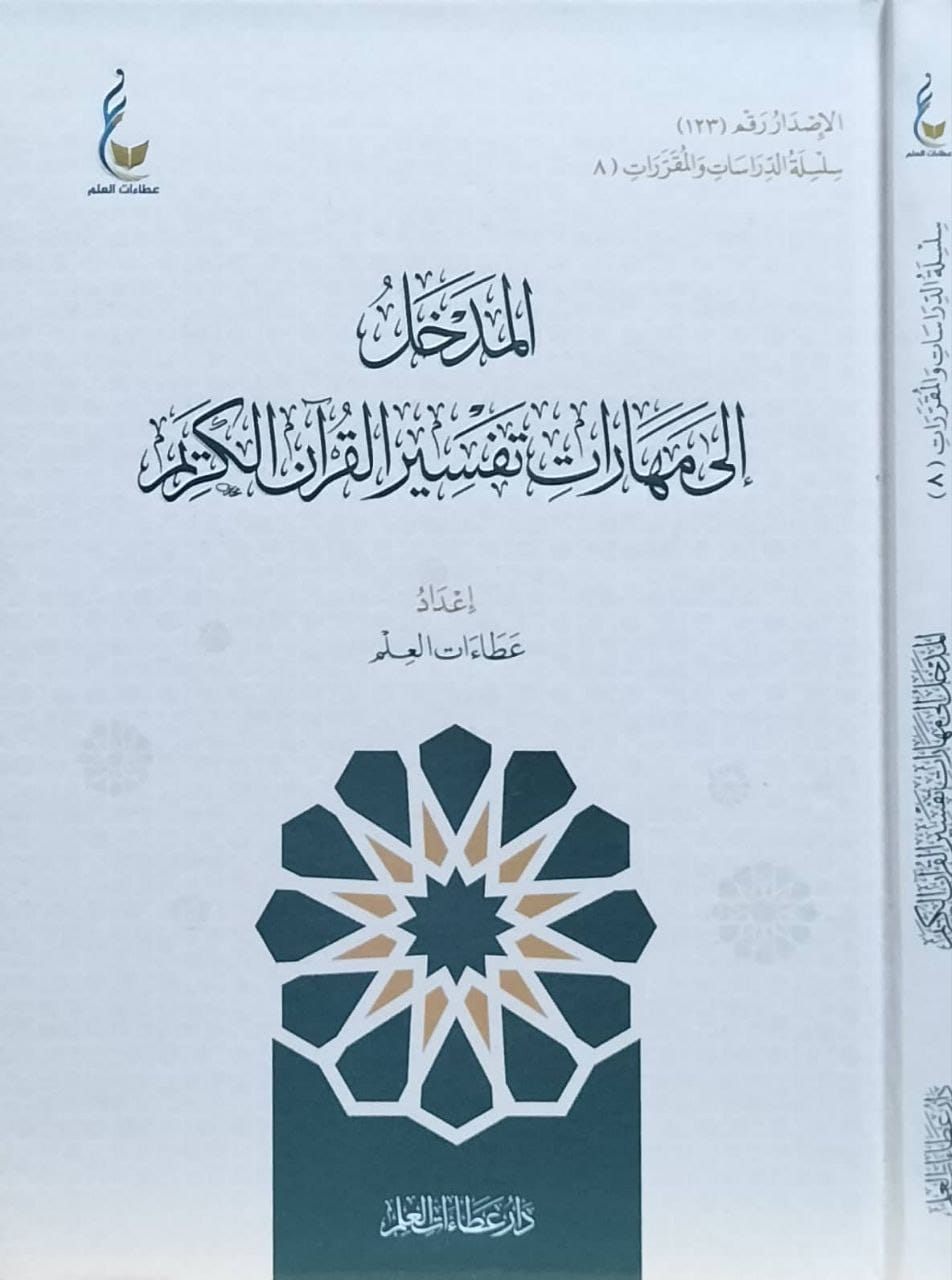 الإِصْدَارُ رَقْم (١٢٣)
سِلْسِلَةُ الدِّرَاسَاتِ وَالمُقَرَّرَاتِ (٨
عطاءات العلم
المَدْخَلُ
إلى مَهَارَاتِ تَفْسِيْرِ القُرْآنِ الكَرِيْمِ
إعْدَادُ
عَطَاءَات العِلْم
دَارُ عَطَاءَاتِ العِلْمِ
عطاءات العلم
سِلْسِلَةُ الدِّرَاسَاتِ وَالمُقَرَّرَات (٨)
المَدْخَلُ إلى مَهَارَاتِ تَفْسِيْرِ القُرْآنِ الكَرِيْمِ
دَارُ عَطَاءَاتِ العِلْمِ